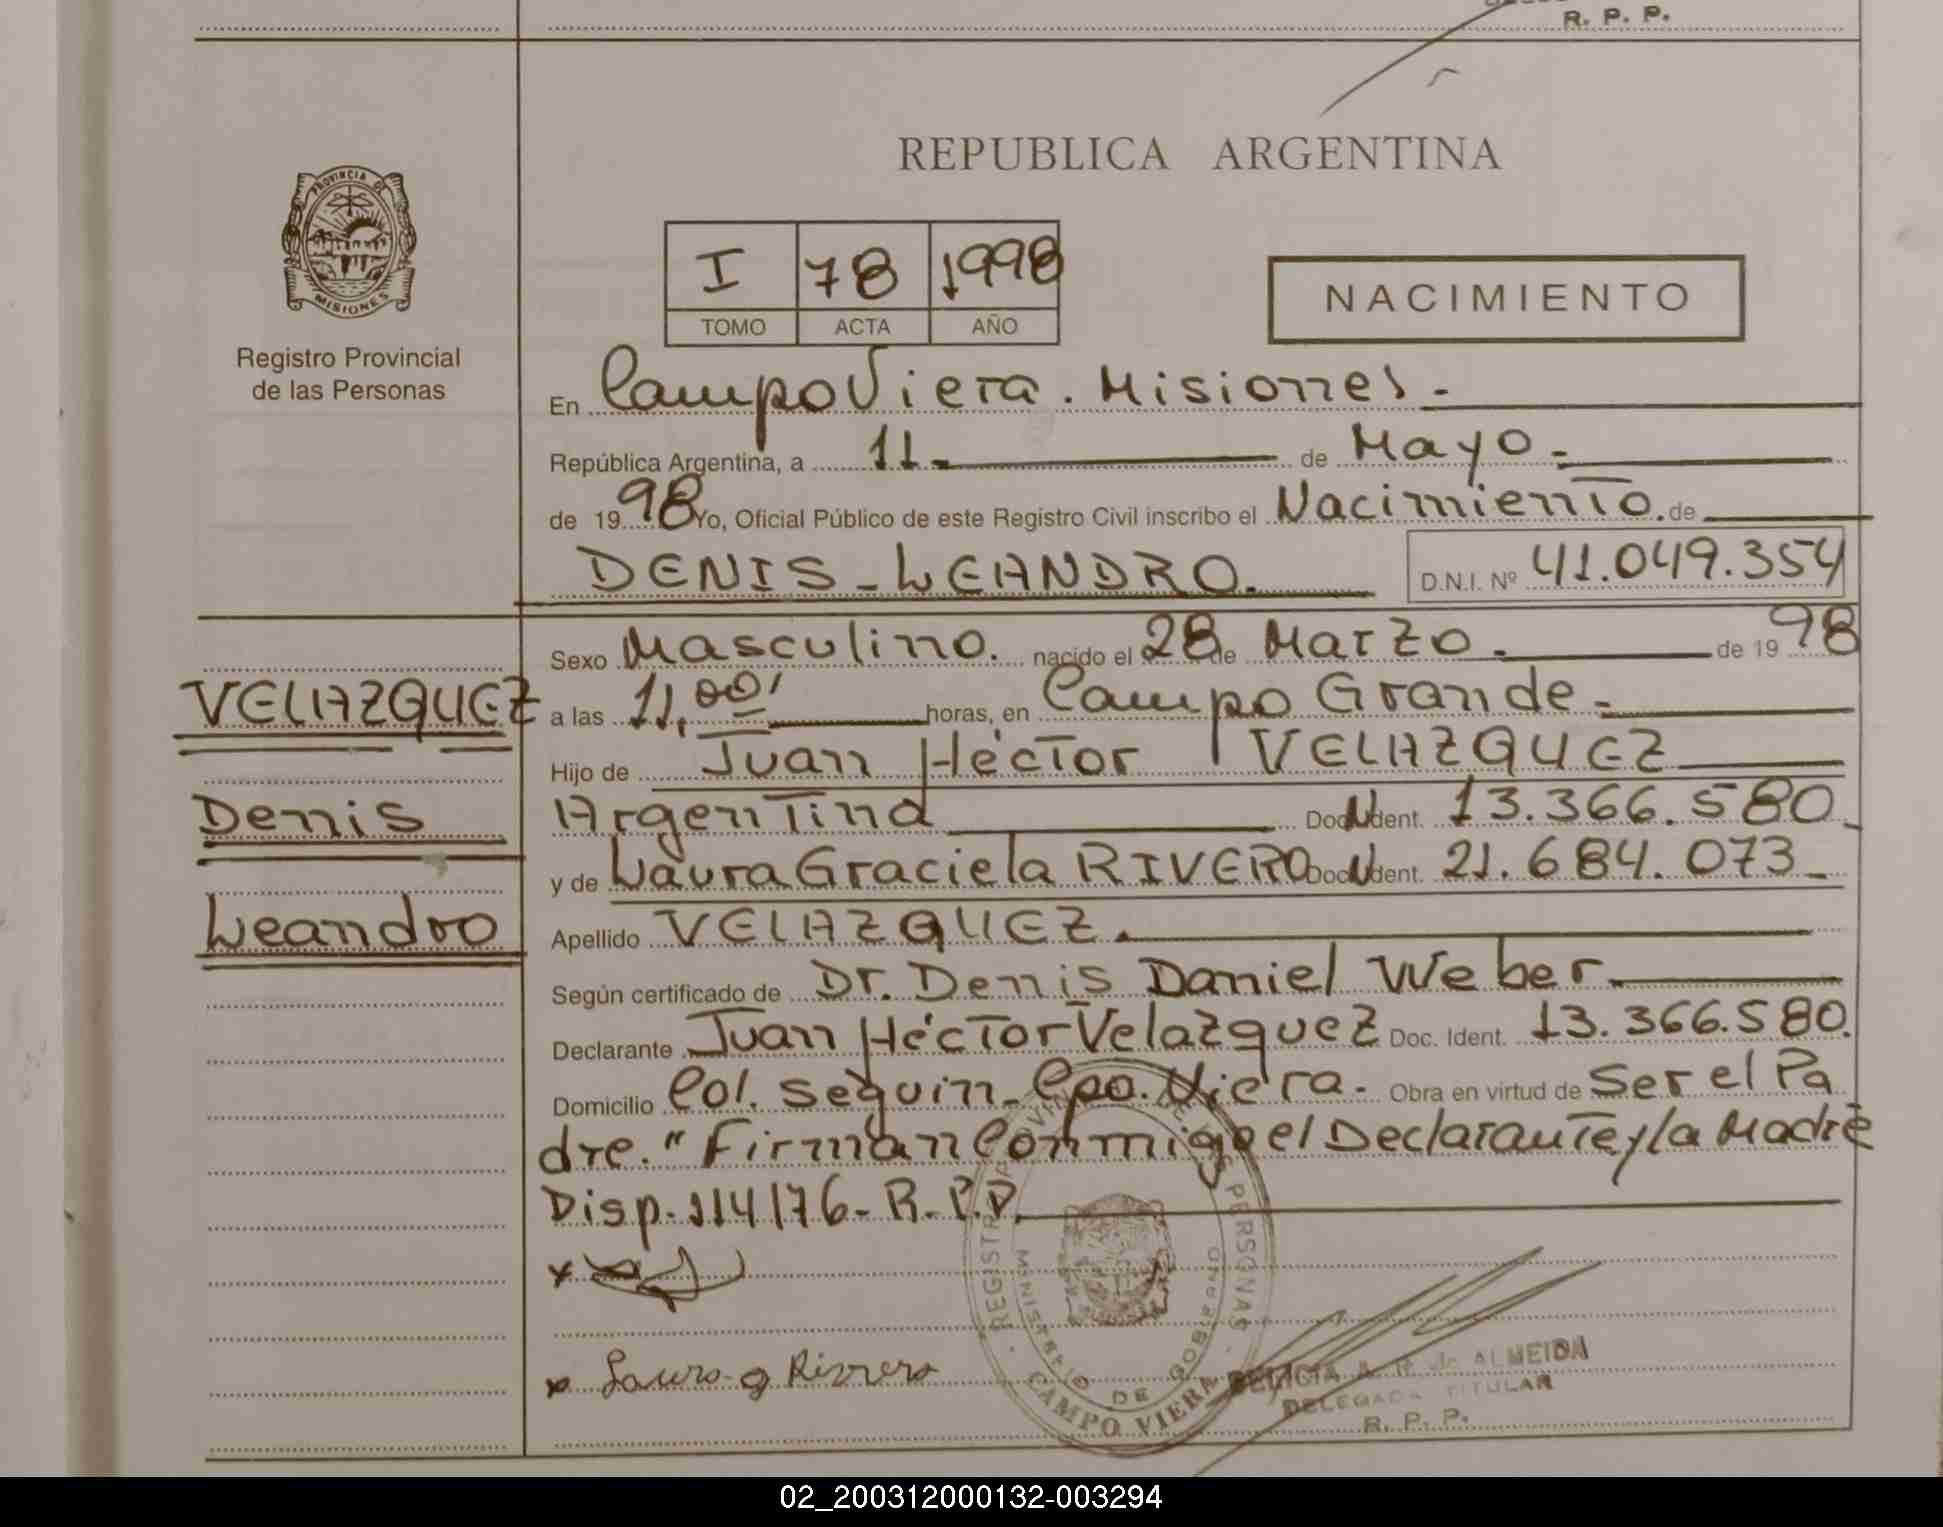 R. P. P.
REPUBLICA ARGENTINA
PROVINCIA DE
MISIONES
Registro Provincial
de las Personas
I 78 1998
TOMO ACTA AÑO
NACIMIENTO
En Campo Viera. Misiones -
República Argentina, a 11 - de Mayo -
de 1998 Yo, Oficial Público de este Registro Civil inscribo el Nacimiento. de
DENIS - LEANDRO. D.N.I. Nº 41.049.354
Sexo Masculino. nacido el 28 de Marzo - de 1998
VELAZQUEZ
a las 11,00' horas, en Campo Grande -
Hijo de Juan Héctor VELAZQUEZ
Denis
Argentina Doc. Ident. 13.366.580 -
y de Laura Graciela RIVERO Doc. Ident. 21.684.073 -
Leandro
Apellido VELAZQUEZ.
Según certificado de Dr. Denis Daniel Weber
Declarante Juan Héctor Velazquez Doc. Ident. 13.366.580.
Domicilio Col. Seguin - Cpo. Viera - Obra en virtud de Ser el Pa
dre." Firman Conmigo el Declarante y la Madre
Disp. 114/76 - R.P.P.
x
x Laura g Rivero
REGISTRO PROVINCIAL DE LAS PERSONAS
MINISTERIO DE GOBIERNO
CAMPO VIERA
DELICIA A. R. de ALMEIDA
DELEGADA TITULAR
R. P. P.
02_200312000132-003294